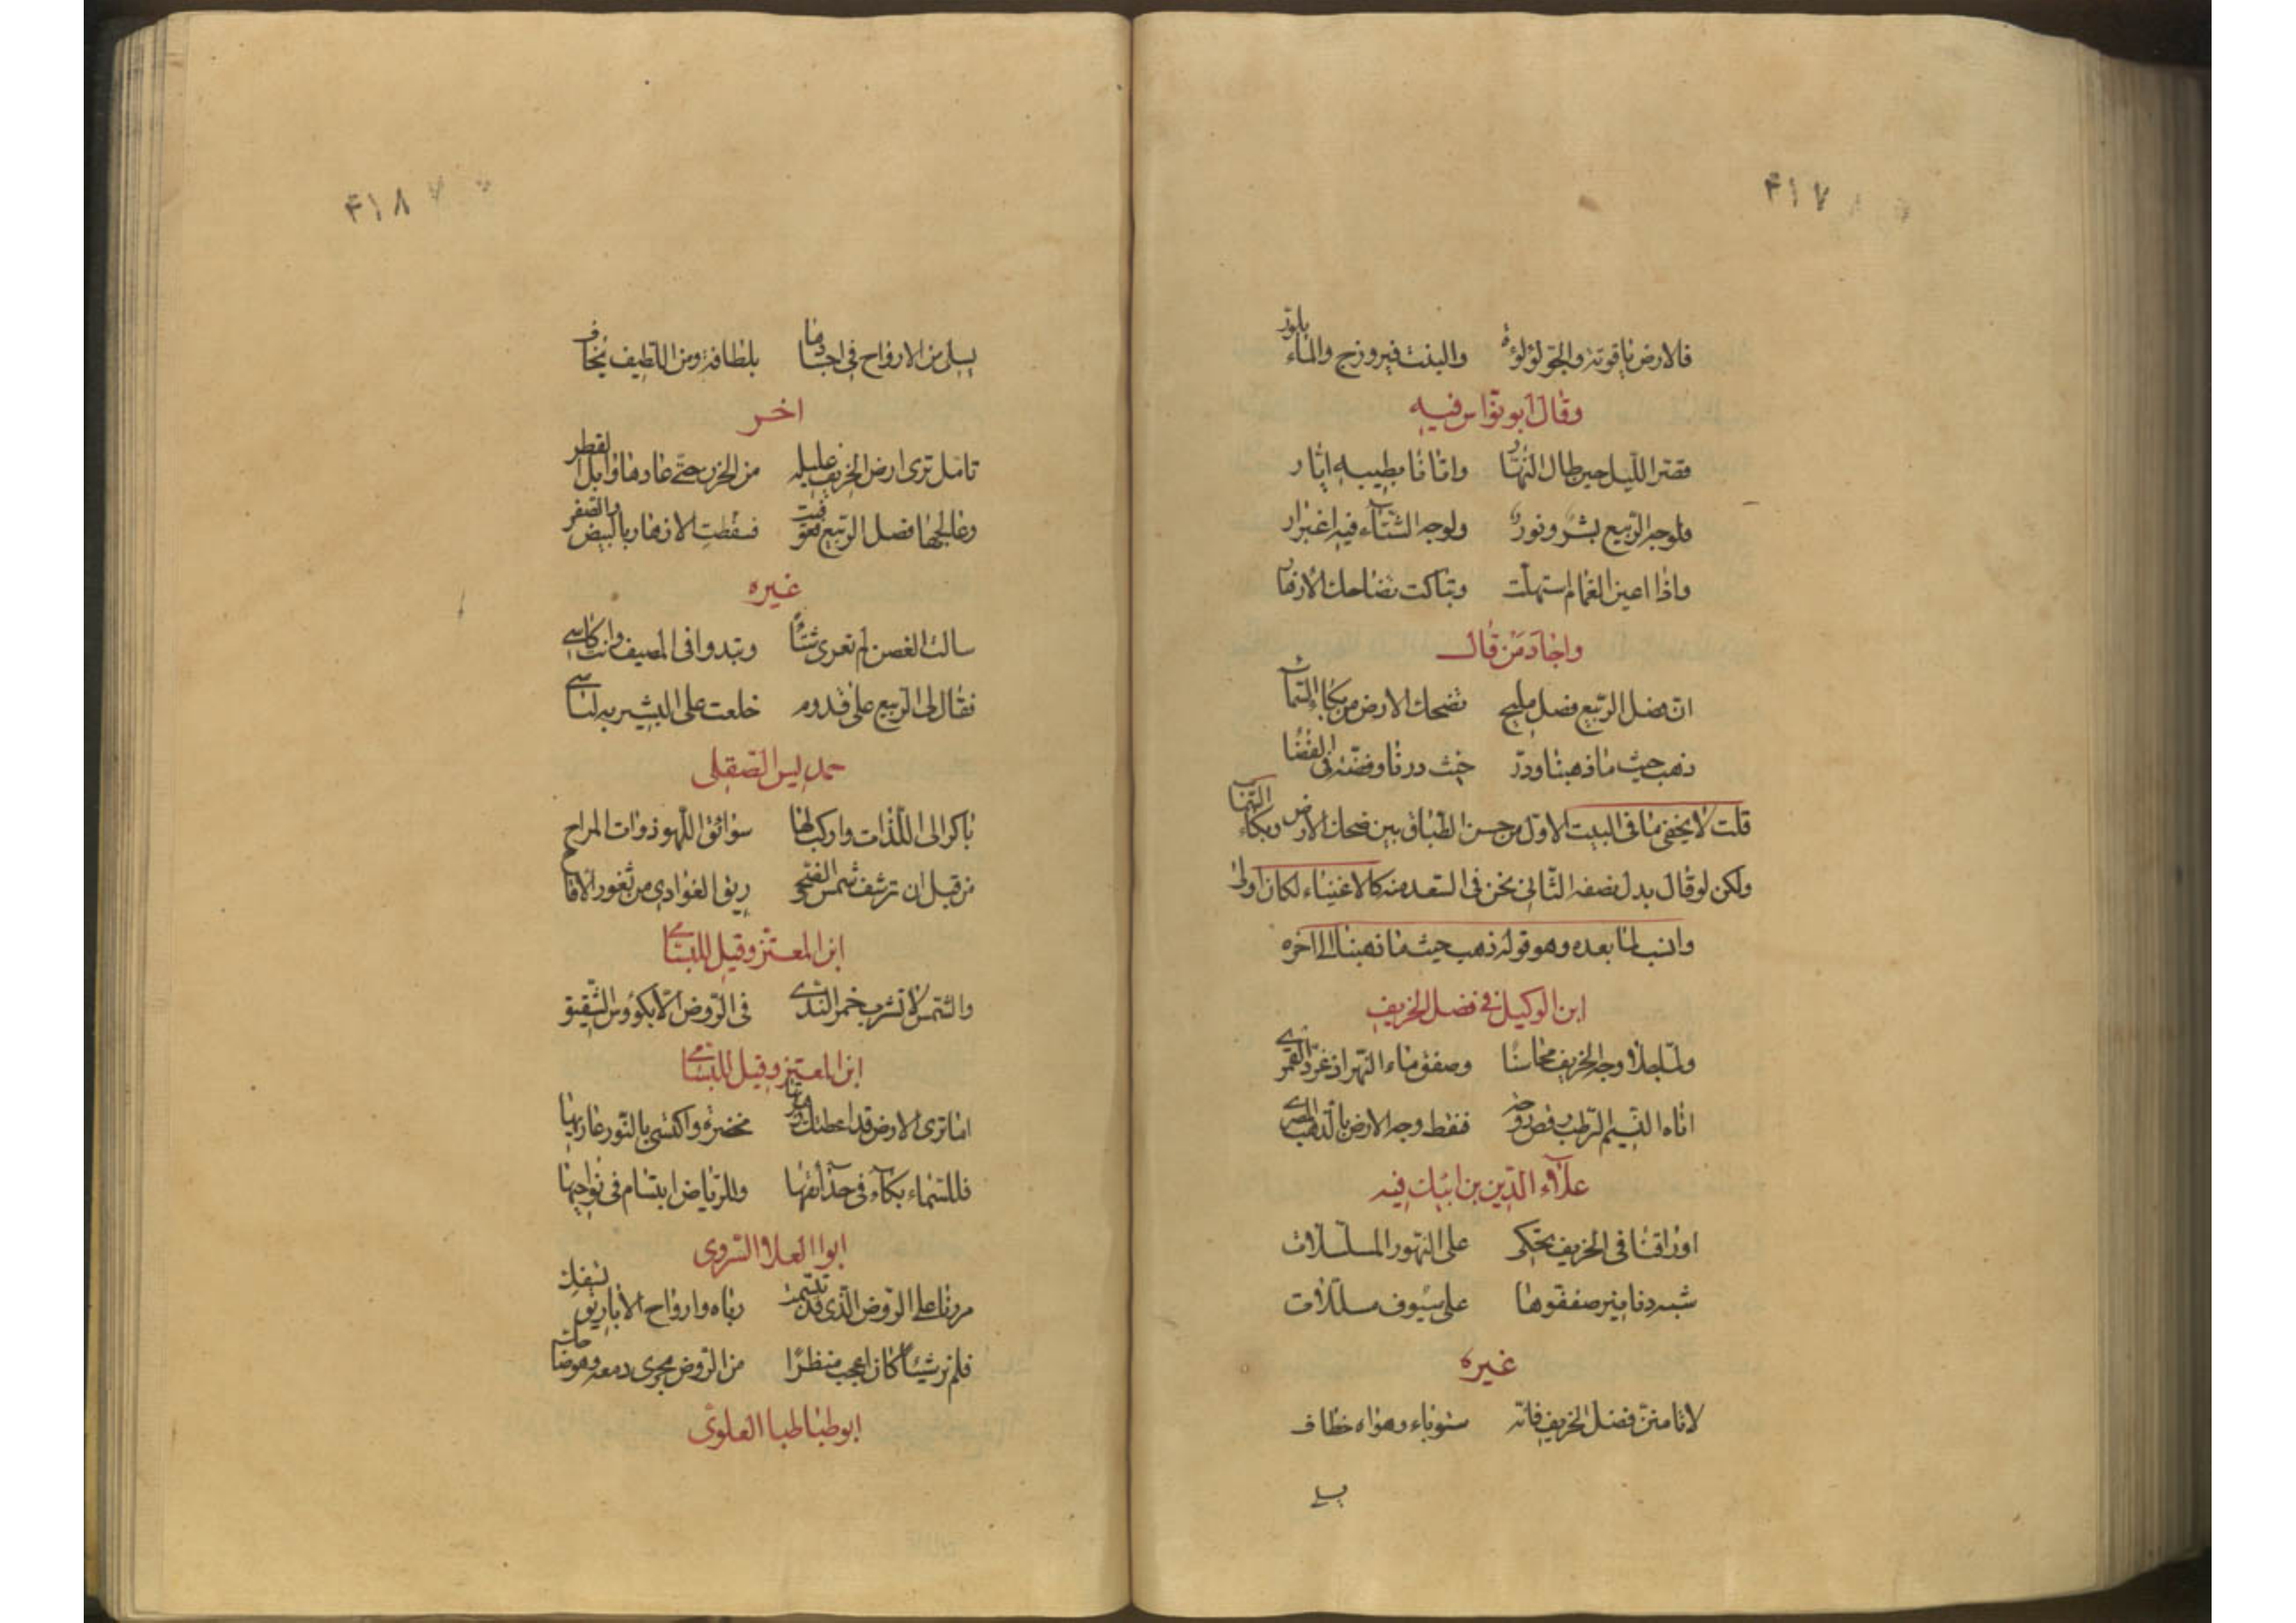 ٤١٧
فالارض ياقوتة والجوّ لؤلؤة والنبت فيروزج والماء بلّور
وقال ابو نوّاس فيه
قصر الليل حين طال النهار واتانا بطيبه ايار
ولوجه الربيع بشر ونور ولوجه الشتاء فيه اغبرار
واذا اعين الغمام استهلّت وتباكت تضاحك الازهار
واجاد من قال
ان فصل الربيع فصل مليح تضحك الارض من بكاء السماء
ذهب حيث ما ذهبنا ودرّ حيث درنا وفضّة في الفضا
قلت لا يخفى ما في البيت الاول من حسن الطباق بين ضحك الارض وبكاء السماء
ولكن لو قال بدل نصفه الثاني نحن في السعد منه كالاغنياء لكان اولى
وانسب لما بعده وهو قوله ذهب حيث ما ذهبنا الى اخره
ابن الوكيل في فصل الخريف
ولمّا جلا وجه الخريف محاسنا وصفق ماء النهر اذ غرّد القمرى
اتاه النسيم الرطب رقص دوحه فنقط وجه الارض بالذهب المصرى
علاء الدين بن ايبك فيه
اوراقنا في الخريف تحكى على النهور المسلسلات
شبه دنانير صففوها على سيوف مسللات
غيره
لا تامننّ فصل الخريف فانه مستوباء وهواه خطاف
يسلى
٤١٨
يسلى من الارواح في اجسامها بلطافة ومن اللطيف يخاف
اخر
تامل ترى ارض الخريف عليله من الحرّ حتّى عادها وابل القطر
وعالجها فصل الربيع فعوفيت فنقطت الازهار بالبيض والصفر
غيره
سالت الغصن لم تعرى شتاًء وتبدوا في المصيف وانت كاسى
فقال لى الربيع على قدوم خلعت على البشير به لباسى
حمديس الصقلى
باكر الى اللذات واركب لها سوابق اللهو ذوات المراح
من قبل ان ترشف شمس الضحى ريق الغوادى من ثغور الاقاح
ابن المعتز وقيل للبسامى
والشمس لا تشرب خمر الندى في الروض الا بكؤوس الشقيق
ابن المعتز وقيل للبسامى
اما ترى الارض قد اعطتك زهرتها مخضرة واكتسى بالنور عاريها
فللسماء بكاء في حدائقها وللرياض ابتسام في نواحيها
ابوا العلا السروى
مررنا على الروض الذى قد تبسمت رباه وارواح الاباريق تسفك
فلم نر شيئا كان اعجب منظرا من الروض يجرى دمعه وهو ضاحك
ابو طباطبا العلوى